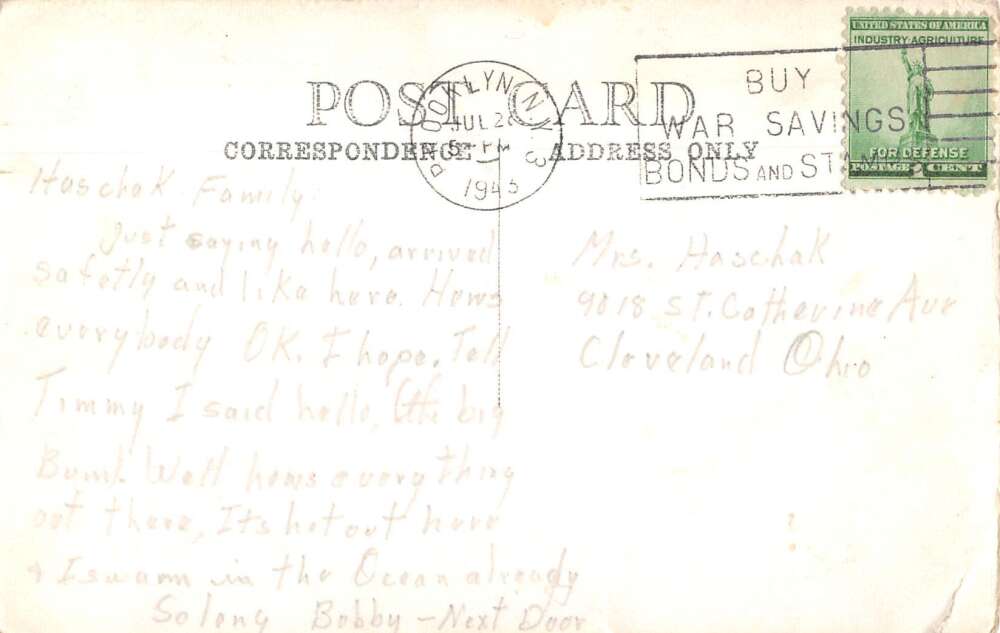 POST CARD
CORRESPONDENCE ADDRESS ONLY
BROOKLYN, N.Y.
JUL 2
5 PM
1943
BUY
WAR SAVINGS
BONDS AND STAMPS
UNITED STATES OF AMERICA
INDUSTRY AGRICULTURE
FOR DEFENSE
POSTAGE 1 CENT
Haschak Family
Just saying hello, arrived
safetly and like here. Hows
everybody OK. I hope. Tell
Timmy I said hello, the big
Bum. Well hows everything
out there, Its hot out here
& I swamm in the Ocean already
So long Bobby - Next Door
Mrs. Haschak
9018 St. Catherine Ave
Cleveland Ohio